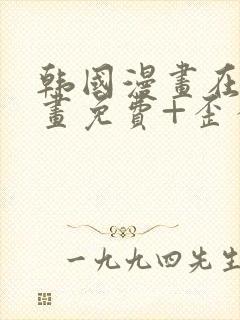 韩國漫畫在
畫免費+歪
一九九四先生